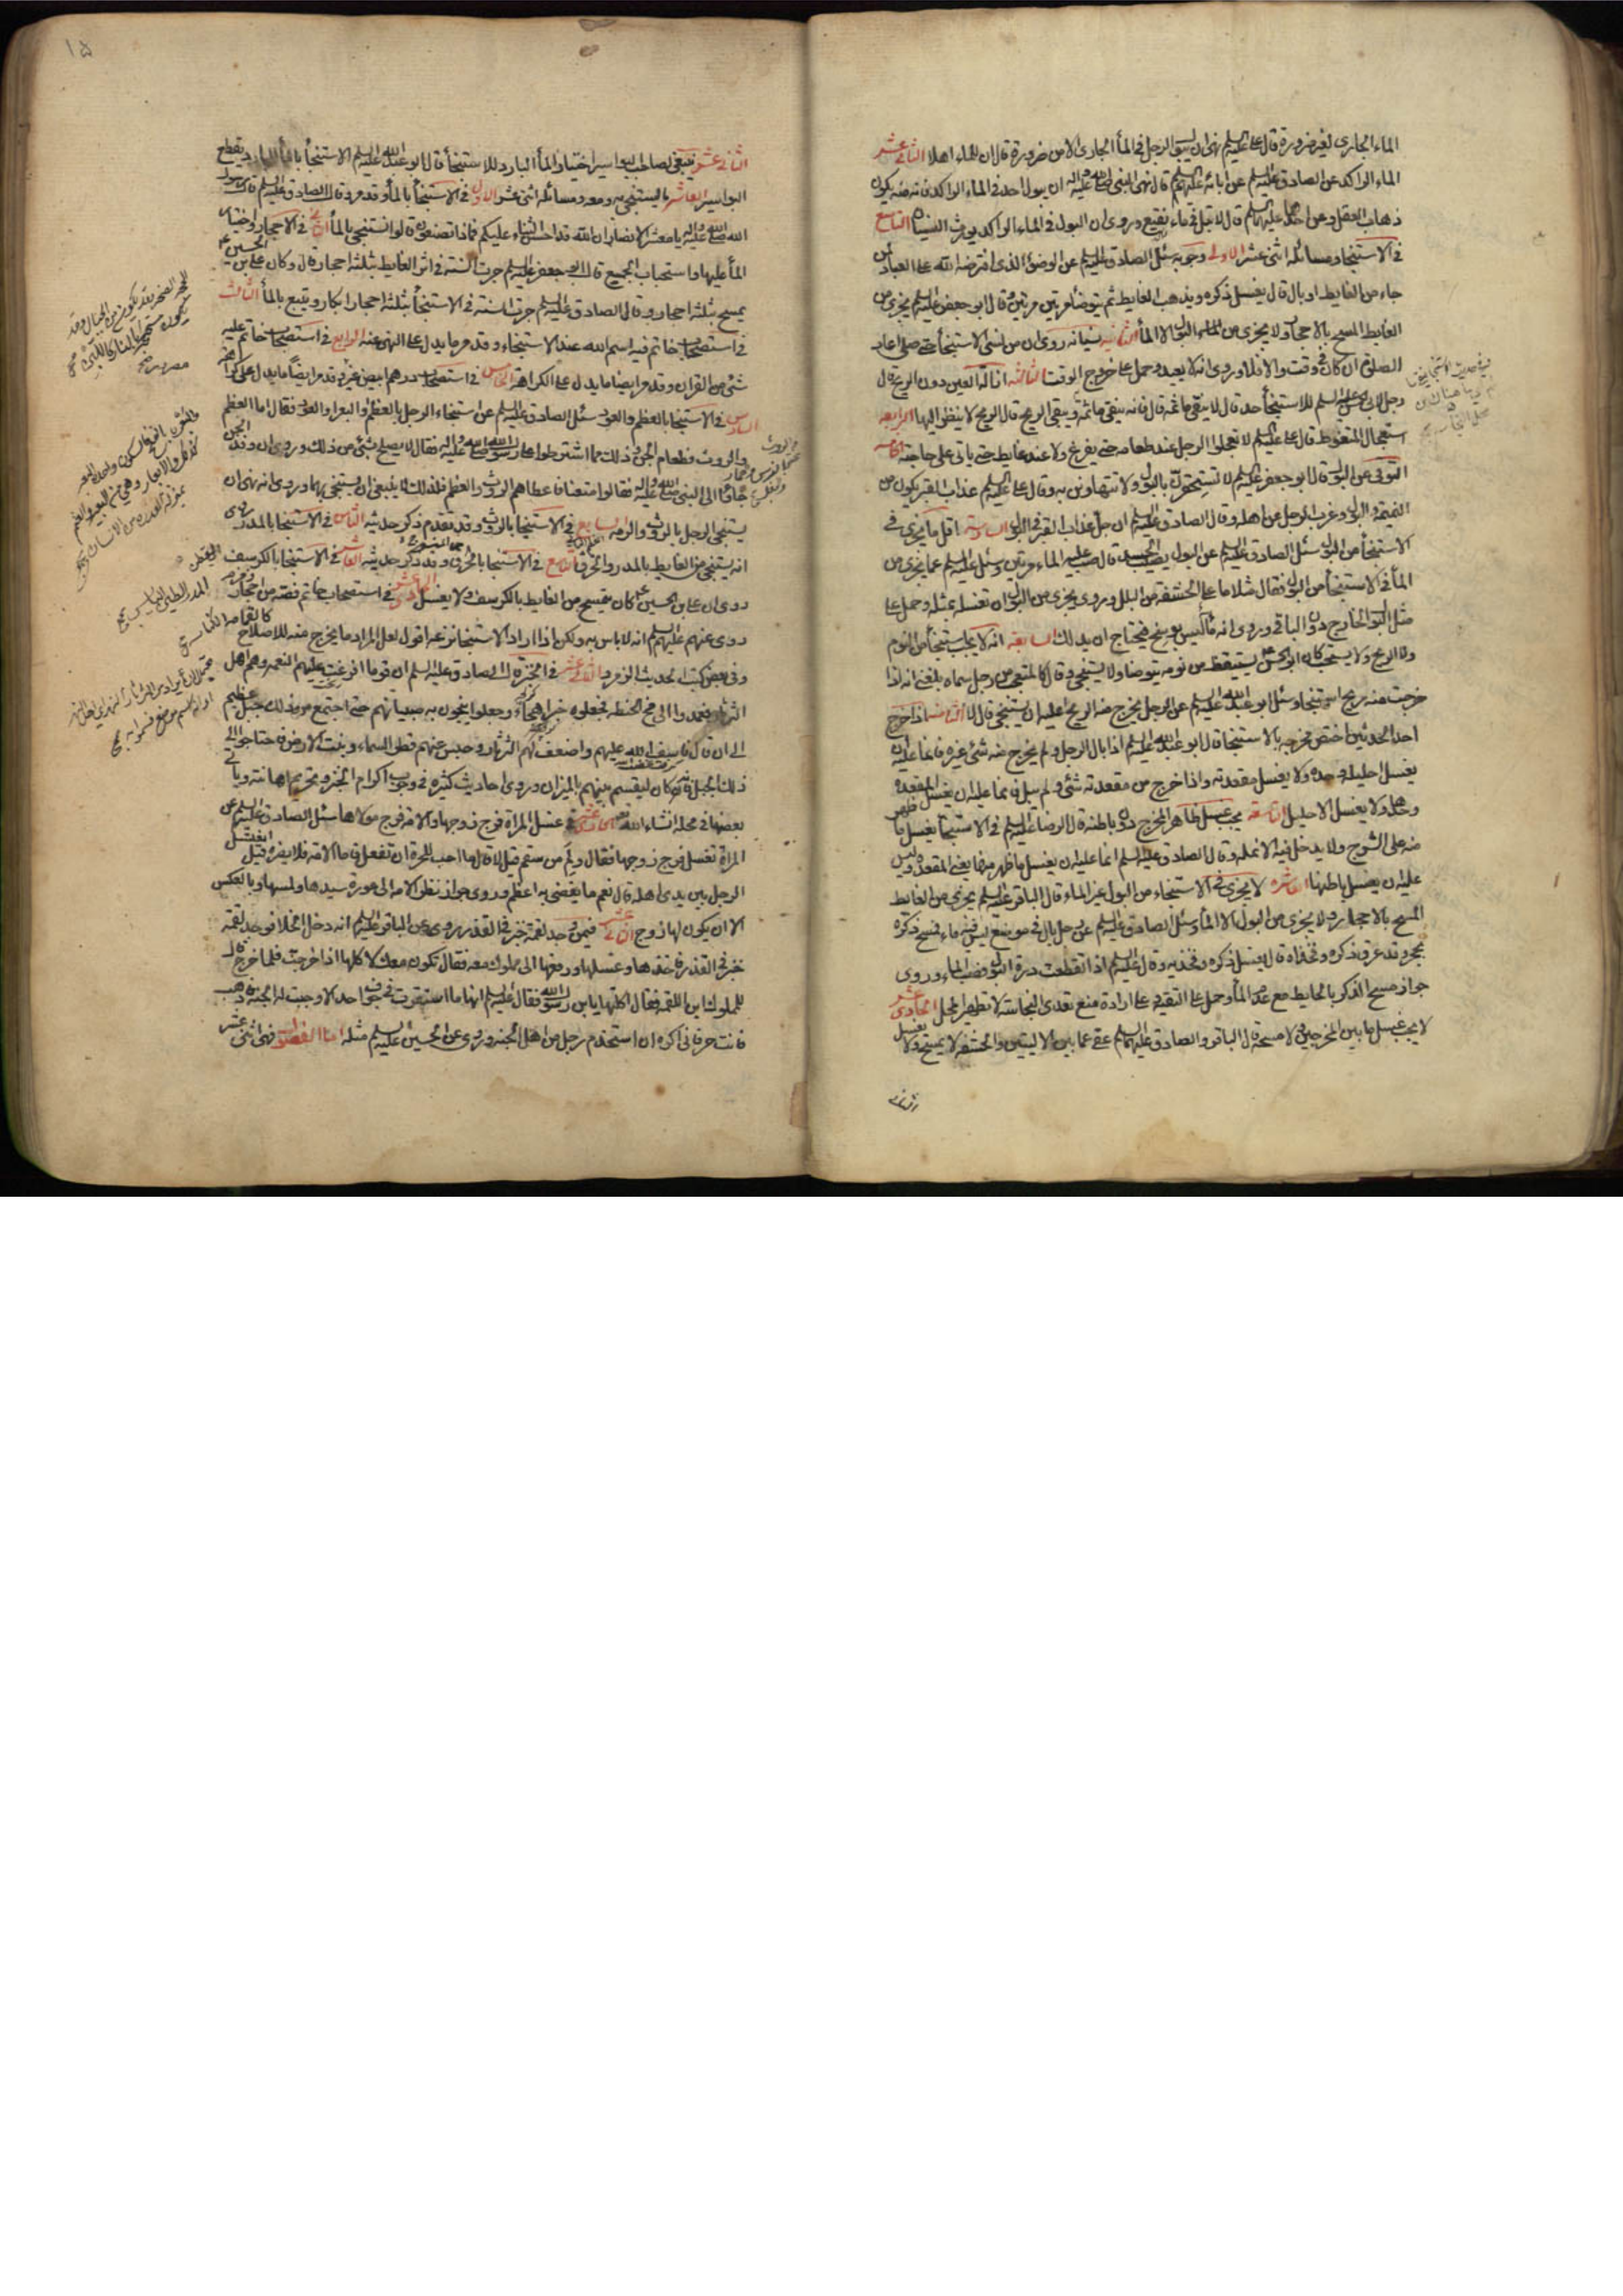 الماء الجارى لغير ضرورة قال على عليه السلم نهى ان يبول الرجل فى المأ الجارى الا من ضرورة قال ان للماء اهلا الثامن عشر
الماء الراكد عن الصادق عليه السلم عن ابائه عليهم السلم قال نهى النبى صلى الله عليه واله ان يبول احد فى الماء الراكد فانه منه يكون
ذهاب العقل وعن احدهما عليهما السلم قال لا تبل فى ماء نقيع وروى ان البول فى الماء الراكد يورث النسيان التاسع
فى الاستنجا ومسائله اثنى عشر الاولى وجوبه سئل الصادق عليه السلم عن الوضؤ الذى افترضه الله على العباد لمن
جاء من الغايط او بال قال يغسل ذكره ويذهب الغايط ثم يتوضأ مرتين مرتين وقال ابو جعفر عليه السلم يجزى من
الغايط المسح بالاحجار ولا يجزى من البول الا المأ الثانيه نسيانه روى ان من نسى الاستنجأ حتى صلى اعاد
الصلوة ان كان فى وقت والا فلا وروى انه لا يعيد وحمل على خروج الوقت الثالثه ازالة العين دون الريح قال
رجل لابى الحسن عليه السلم للاستنجأ حد قال لا ينقى ما ثمه قال فانه ينقى ما ثمه ويبقى الريح قال الريح لا ينظر اليها الرابعه
استعجال المتغوط قال على عليه السلم لا تعجلوا الرجل عند طعامه حتى يفرغ ولا عند غايطه حتى ياتى على حاجته الخامسه
التوقى عن البول قال ابو جعفر عليه السلم لا تستحقرن بالبول ولا تتهاونن به وقال على عليه السلم عذاب القبر يكون من
النميمة والبول وعزب الرجل عن اهله وقال الصادق عليه السلم ان جل عذاب القبر فى البول السادسة اقل ما يجزى فى
الاستنجأ من البول سئل الصادق عليه السلم عن البول يصيب الجسد قال صب عليه الماء مرتين وسئل عليه السلم عما يجزى من
المأ فى الاستنجأ من البول فقال مثلا ما على الحشفة من البلل وروى يجزى من البول ان تغسله بمثله وحمل على
مثل البول الخارج دون الباقى وروى انه مأ ليس بوسخ فيحتاج ان يدلك السابعه انه لا يجب الاستنجأ من النوم
ولا الريح ولا يستحب كان ابو الحسن يستيقظ من نومه يتوضا ولا يستنجى وقال كالمتعجب من رجل سماه بلغنى انه اذا
خرجت منه ريح استنجا وسئل ابو عبد الله عليه السلم عن الرجل يخرج منه الريح اعليه ان يستنجى قال لا الثامنه اذا خرج
احد الحدثين اختص مخرجه بالاستنجا قال ابو عبد الله عليه السلم اذا بال الرجل ولم يخرج منه شئ غيره فانما عليه ان
يغسل احليله وحده ولا يغسل مقعدته واذا خرج من مقعدته شئ ولم يبل فانما عليه ان يغسل المقعده
وحدها ولا يغسل الاحليل التاسعه يجب غسل ظاهر المخرج دون باطنه قال الرضا عليه السلم فى الاستنجأ يغسل ما ظهر
منه على الشرج ولا يدخل فيه الانمله وقال الصادق عليه السلم انما عليه ان يغسل ما ظهر منها يعنى المقعده وليس
عليه ان يغسل باطنها العاشره لا يجزى فى الاستنجاء من البول غير الماء قال الباقر عليه السلم يجزى من الغايط
المسح بالاحجار ولا يجزى من البول الا المأ وسئل الصادق عليه السلم عن رجل بال فى موضع ليس فيه ماء فمسح ذكره
بحجر وقد عرق ذكره وفخذاه قال يغسل ذكره وفخذيه وقال عليه السلم اذا انقطعت درة البول فصب الماء وروى
جواز مسح الذكر بالحايط مع عدم المأ وحمل على التقية وعلى ارادة منع تعدى النجاسة لا تطهير المحل الحادى عشر
لا يجب غسل ما بين المخرجين ولا مسحه قال الباقر والصادق عليهما السلم عفى عما بين الاليتين والحشفه لا يمسح ولا يغسل
الثانى
١٥
الثانى عشر ينبغى لصاحب البواسير اختيار المأ البارد للاستنجأ قال ابو عبد الله عليه السلم الاستنجأ بالمأ البارد يقطع
البواسير العاشر ما يستنجى به ومعه ومسائله اثنى عشر الاول فى الاستنجأ بالمأ وقد مر وقال الصادق عليه السلم قال رسول
الله صلى الله عليه واله يا معشر الانصار ان الله قد احسن الثناء عليكم فماذا تصنعون قالوا نستنجى بالمأ الثانى فى الاحجار واختيار
المأ عليها واستحباب الجميع قال ابو جعفر عليه السلم جرت السنة فى اثر الغايط بثلثة احجار قال وكان على بن الحسين
يمسح بثلثه احجار وقال الصادق عليه السلم جرت السنة فى الاستنجأ بثلثة احجار ابكار ويتبع بالمأ الثالث
فى استصحاب خاتم فيه اسم الله عند الاستنجاء وقد مر ما يدل على النهى عنه الرابع فى استصحاب خاتم عليه
شئ من القران وقد مر ايضا ما يدل على الكراهة الخامس فى استصحاب درهم ابيض غير وقد مر ايضا ما يدل على كراهته
السادس فى الاستنجا بالعظم والعود سئل الصادق عليه السلم عن استنجاء الرجل بالعظم والبعر والعود فقال اما العظم
والروث فطعام الجن وذلك مما اشترطوا على رسول الله صلى الله عليه واله فقال لا يصلح بشئ من ذلك وروى ان وفد الجن
جاؤا الى النبى صلى الله عليه واله فقالوا متعنا فاعطاهم الروث والعظم فلذلك لا ينبغى ان يستنجى بهما وروى انه نهى ان
يستنجى الرجل بالروث والرمه السابع فى الاستنجا بالروث وقد تقدم ذكر حديثه الثامن فى الاستنجا بالمدر روى
انه يستنجى من الغايط بالمدر والخرق التاسع فى الاستنجا بالخرق وقد ذكر حديثه العاشر فى الاستنجا بالكرسف
روى ان على بن الحسين كان يتمسح من الغايط بالكرسف ولا يغسل الحادى عشر فى استصحاب خاتم فصه من احجار زمزم
روى عنهم عليهم السلم انه لا باس به ولكن اذا اراد الاستنجأ نزعه اقول لعل المراد ما يخرج منه للاصلاح
وفى بعض كتب الحديث الزمرد الثانى عشر فى الخبز قال الصادق عليه السلم ان قوما افرغت عليهم النعمه وهم اهل
الثرثار فعمدوا الى مخ الحنطه فجعلوه خبزا هجاء وجعلوا ينجون به صبيانهم حتى اجتمع من ذلك جبل عظيم
الى ان قال فاسف الله عليهم واضعف لهم الثرثار وحبس عنهم قطر السماء ونبت الارض فاحتاجوا الى
ذلك الجبل فانه كان ليقسم بينهم بالميزان وروى احاديث كثيره فى وجوب اكرام الخبز وتحريم اهانته وياتى
بعضها فى محله انشاء الله الحادى عشر فى غسل المراة فرج زوجها والامة فرج مولاها سئل الصادق عليه السلم عن
المراة تغسل فرج زوجها فقال ولم من سقم قيل لا قال ما احب للحرة ان تفعل فاما الامة فلا يضره قيل ايغتسل
الرجل بين يدى اهله قال نعم ما يفضى به اعظم وروى جواز نظر الامه الى عورة سيدها ولمسها وبالعكس
الا ان يكون لها زوج الثانى عشر فيمن وجد لقمة خبز فى القذر روى عن الباقر عليه السلم انه دخل الخلا فوجد لقمة
خبز فى القذر فاخذها وغسلها ودفعها الى مملوك معه فقال تكون معك لاكلها اذا خرجت فلما خرج قال
للمملوك اين اللقمه فقال اكلتها يابن رسول الله فقال عليه السلم انها ما استقرت فى جوف احد الا وجبت له الجنة فاذهب
فانت حر فانى اكره ان استخدم رجل من اهل الجنه وروى عن الحسين عليه السلم مثله اما الفصول فهى اثنى عشر